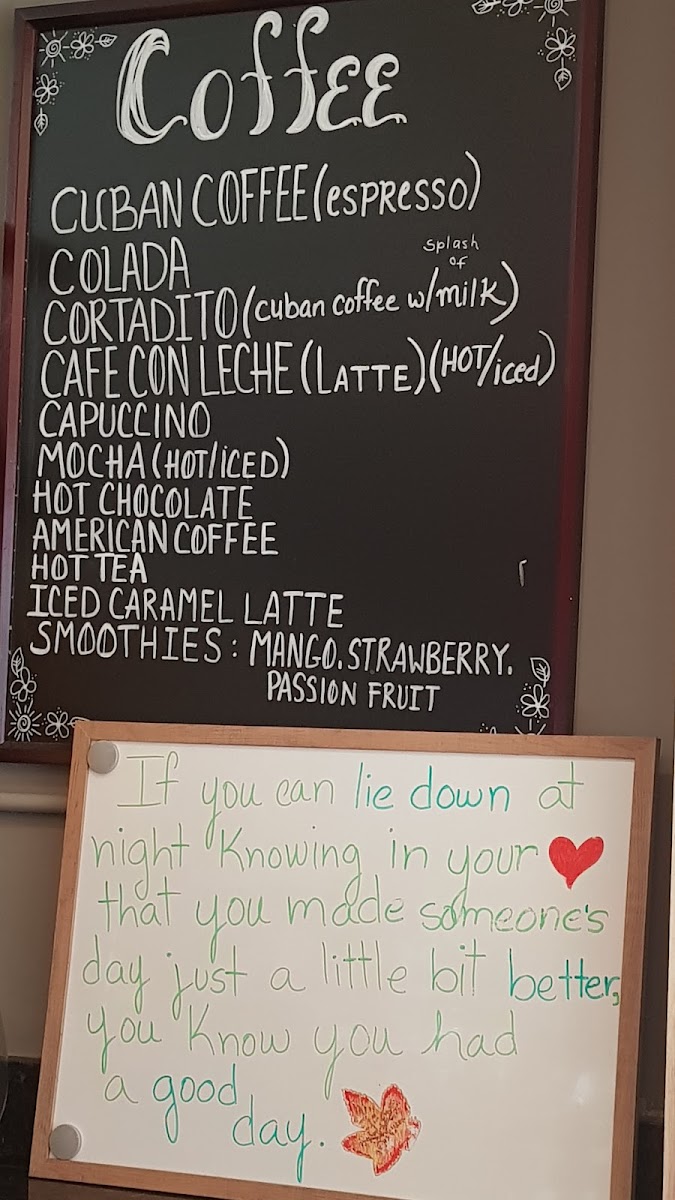 Coffee
CUBAN COFFEE (espresso)
COLADA
splash
of
CORTADITO (cuban coffee w/milk)
CAFE CON LECHE (LATTE) (HOT/iced)
CAPUCCINO
MOCHA (HOT/ICED)
HOT CHOCOLATE
AMERICAN COFFEE
HOT TEA
ICED CARAMEL LATTE
SMOOTHIES: MANGO. STRAWBERRY.
PASSION FRUIT
If you can lie down at
night Knowing in your
that you made someone's
day just a little bit better,
you Know you had
a good
day.